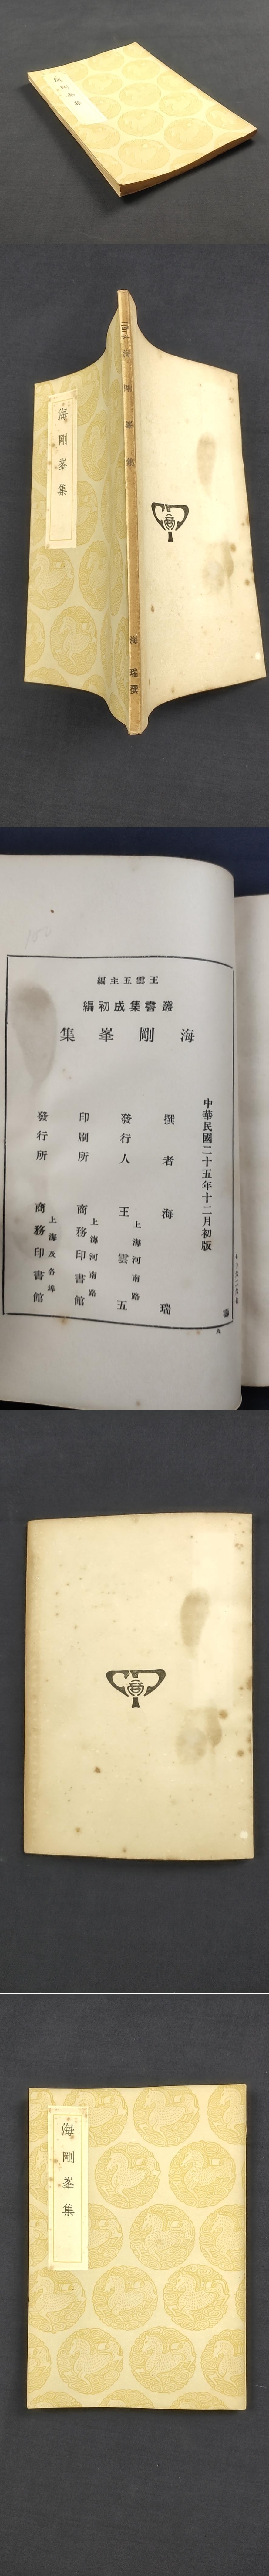 海剛峯集
海剛峯集
海剛峯集
海瑞撰
中華民國二十五年十二月初版
王雲五主編
叢書集成初編
海剛峯集
撰者 海瑞
發行人 王雲五
上海河南路
印刷所 商務印書館
上海河南路
發行所 商務印書館
上海及各埠
商
海剛峯集